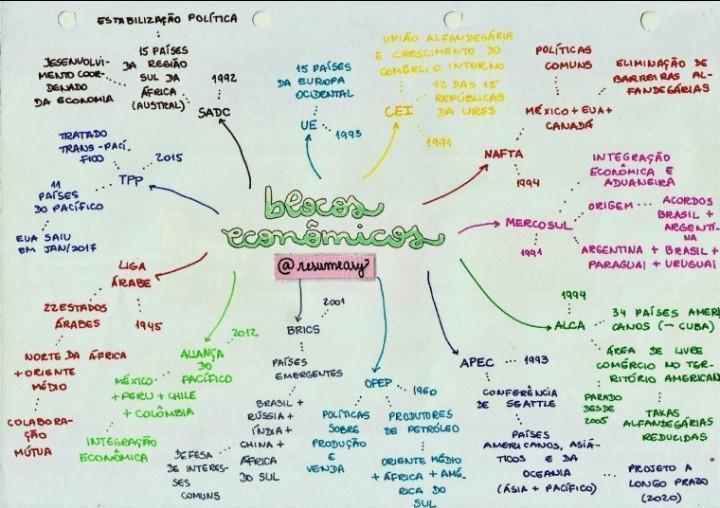 blocos
econômicos
@resumeasy
ESTABILIZAÇÃO POLÍTICA
15 PAÍSES
DA REGIÃO
SUL DA
ÁFRICA
(AUSTRAL)
DESENVOLVI-
MENTO COOR-
DENADO
DA ECONOMIA
1992
SADC
15 PAÍSES
DA EUROPA
OCIDENTAL
UE
1993
UNIÃO ALFANDEGÁRIA
E CRESCIMENTO DO
COMÉRCIO INTERNO
12 DAS 15
REPÚBLICAS
DA URSS
CEI
1991
POLÍTICAS
COMUNS
ELIMINAÇÃO DE
BARREIRAS AL-
FANDEGÁRIAS
MÉXICO + EUA +
CANADÁ
NAFTA
1994
TRATADO
TRANS-PACÍ-
FICO
2015
TPP
11
PAÍSES
DO PACÍFICO
EUA SAIU
EM JAN/2017
INTEGRAÇÃO
ECONÔMICA E
ADUANEIRA
MERCOSUL
1991
ORIGEM
ACORDOS
BRASIL +
ARGENTI-
NA
ARGENTINA + BRASIL +
PARAGUAI + URUGUAI
LIGA
ÁRABE
22 ESTADOS
ÁRABES
1945
NORTE DA ÁFRICA
+ ORIENTE
MÉDIO
COLABORA-
ÇÃO
MÚTUA
2012
ALIANÇA
DO
PACÍFICO
MÉXICO
+ PERU + CHILE
+ COLÔMBIA
INTEGRAÇÃO
ECONÔMICA
2001
BRICS
PAÍSES
EMERGENTES
BRASIL +
RÚSSIA +
ÍNDIA +
CHINA +
ÁFRICA
DO SUL
DEFESA
DE INTERES-
SES
COMUNS
OPEP
1960
POLÍTICAS
SOBRE
PRODUÇÃO
E
VENDA
PRODUTORES
DE PETRÓLEO
ORIENTE MÉDIO
+ ÁFRICA + AMÉ-
RICA DO
SUL
APEC
1993
CONFERÊNCIA
DE SEATTLE
PAÍSES
AMERICANOS, ASIÁ-
TICOS E DA
OCEANIA
(ÁSIA + PACÍFICO)
PROJETO A
LONGO PRAZO
(2020)
1994
ALCA
34 PAÍSES AMERI
CANOS (- CUBA)
ÁREA DE LIVRE
COMÉRCIO NO TER-
RITÓRIO AMERICAN
PARADO
DESDE
2005
TAXAS
ALFANDEGÁRIAS
REDUZIDAS